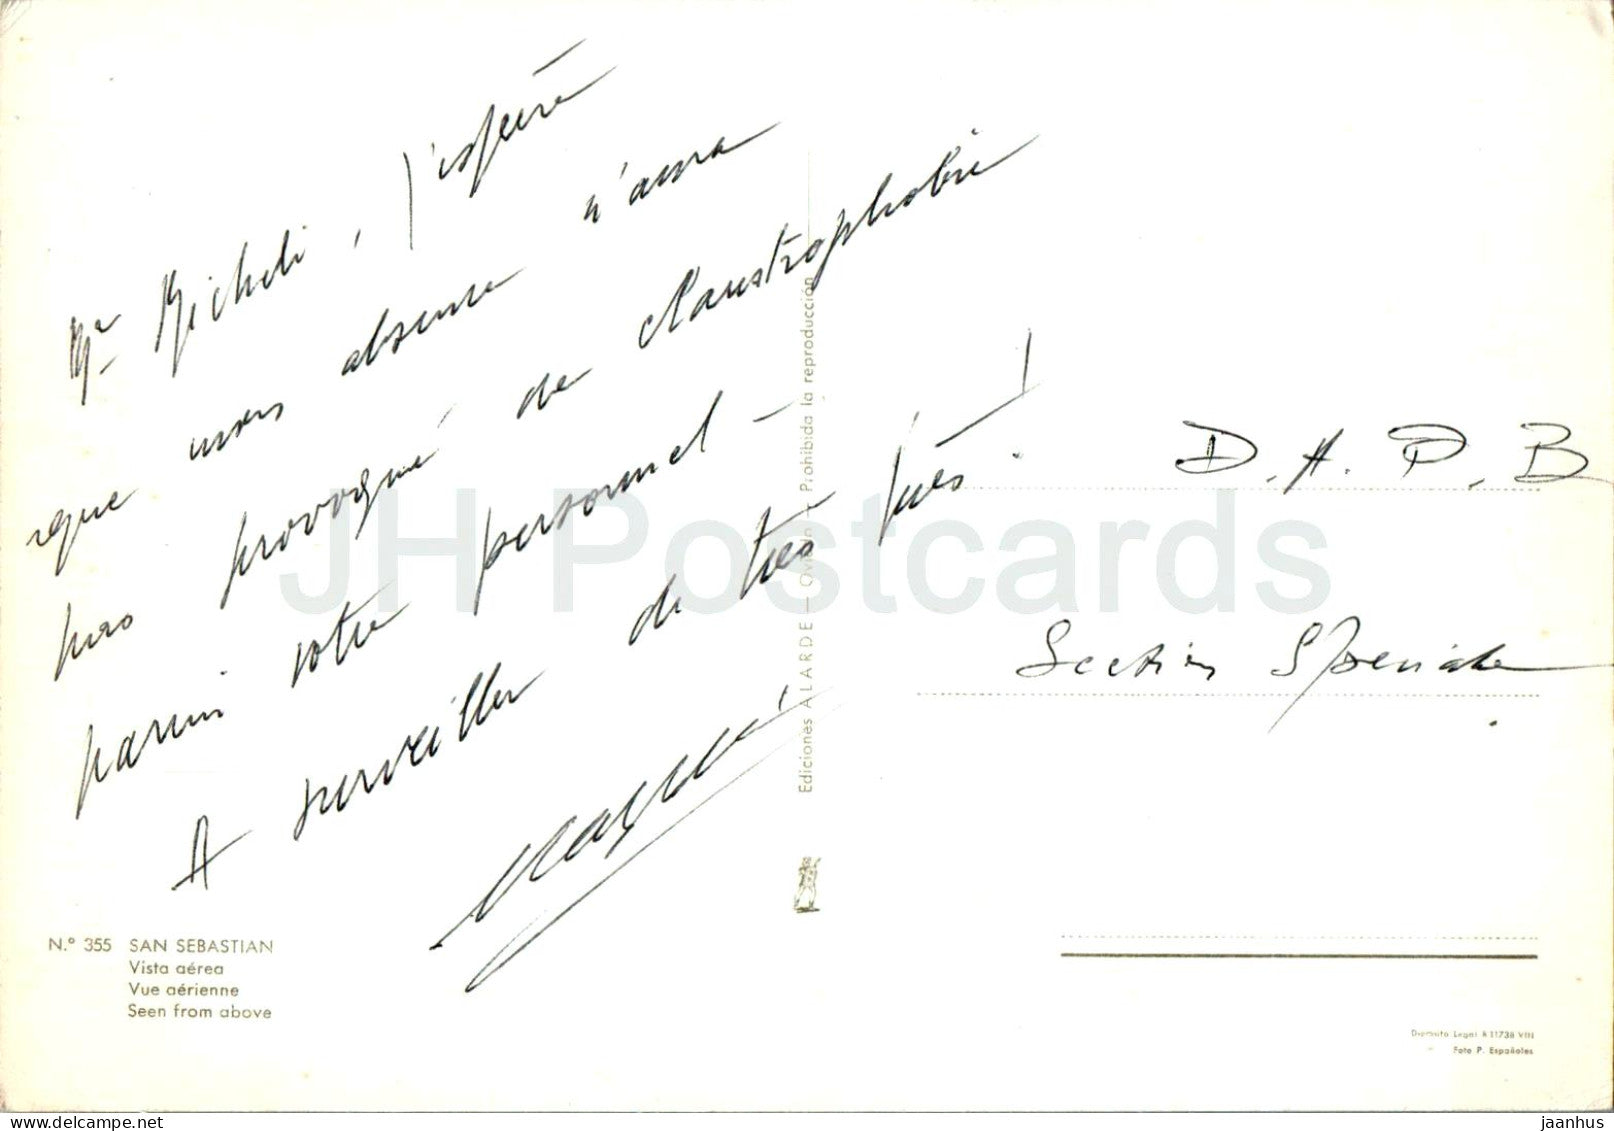 Mr Micheli, j'espère
que mon absence n'aura
pas provoqué de claustrophobie
parmi votre personnel -
A surveiller de très près !
D.A.P.B
Section Spéciale
N.º 355 SAN SEBASTIAN
Vista aérea
Vue aérienne
Seen from above
Ediciones ALARDE - Oviedo - Prohibida la reproducción
Depósito Legal A 11738 VIII
Foto P. Españoles
JH Postcards
jaanhus